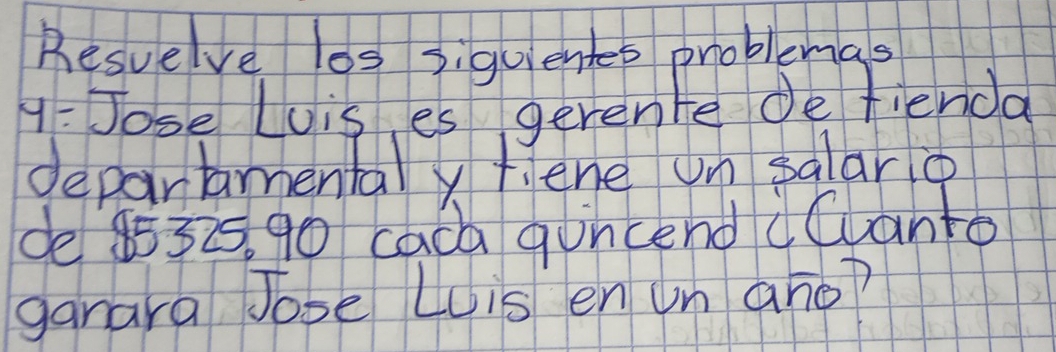 Resuelve los siguientes problemas
4= Jose Luis, es gerente de tienda
departamental y tiene un salario
de $5325.90 cada quincend ¿Cuanto
ganara Jose Luis en un año?